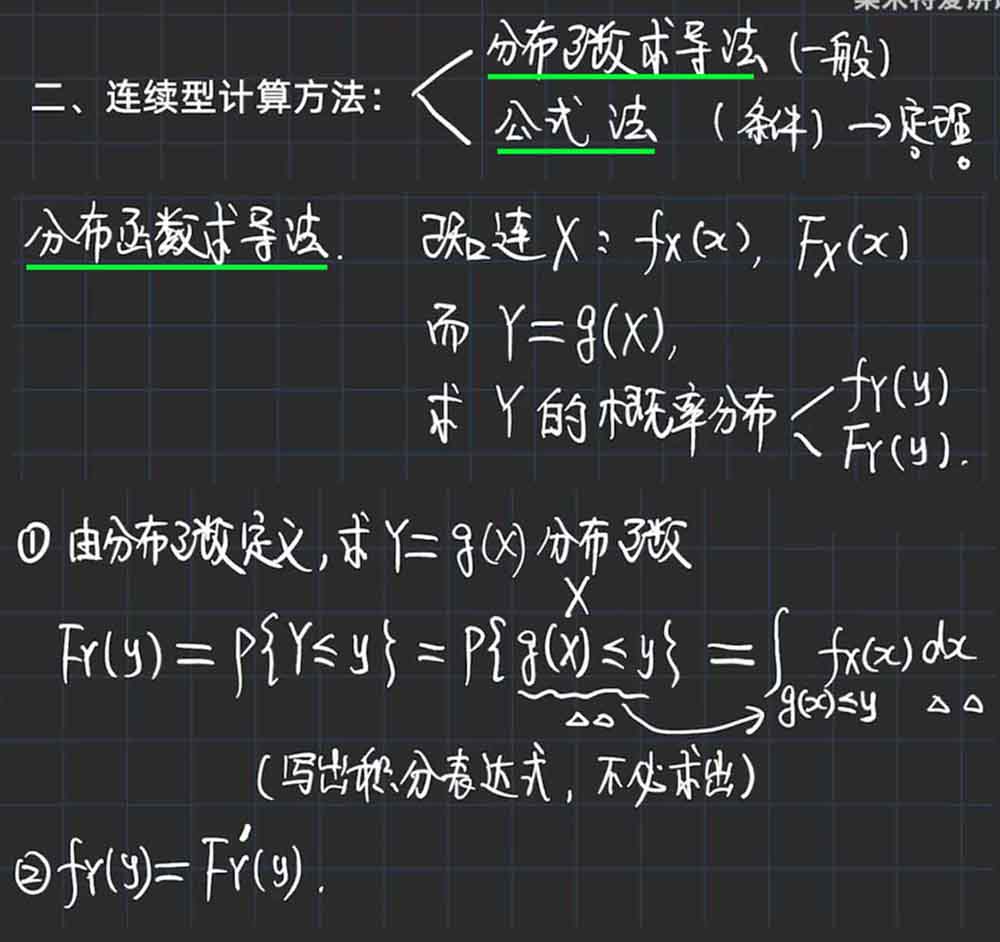 二、连续型计算方法：
分布函数求导法（一般）
公式法（条件）→定理
分布函数求导法. 已知连X：fX(x), FX(x)
而 Y=g(X),
求 Y 的概率分布
fY(y)
FY(y).
① 由分布函数定义,求Y=g(X)分布函数
X
FY(y)=P{Y≤y}=P{g(X)≤y}=∫ fX(x)dx
g(x)≤y
（写出积分表达式，不必求出）
② fY(y)=FY′(y).